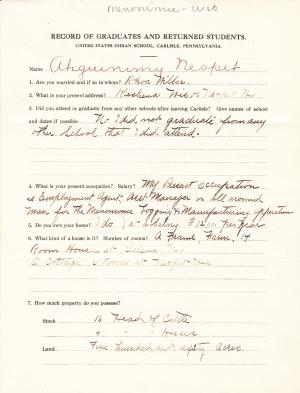 Menominee - Wis
RECORD OF GRADUATES AND RETURNED STUDENTS.
UNITED STATES INDIAN SCHOOL, CARLISLE, PENNSYLVANIA.
Name Ahquinimy Neopet
1. Are you married and if so to whom? Rhoa Wilber
2. What is your present address? Keshena Wis or Neopit Wis.
3. Did you attend or graduate from any other schools after leaving Carlisle? Give names of school
and dates if possible No I did not graduate from any
other School that I did attend.
4. What is your present occupation? Salary? My Present occupation
is Employment Agent, Asst Manager or all around
man for the Menominee Logging & Manufacturing operation
5. Do you own your home? I do) at a salary $1200 Per year
6. What kind of house is it? Number of rooms? A Frame, 14
Room House at
A Cottage 6 Rooms at Neopit Wis
7. How much property do you possess?
Stock 16 Head of Cattle
4 " " Horses
Land Five hundred and sixty Acres.